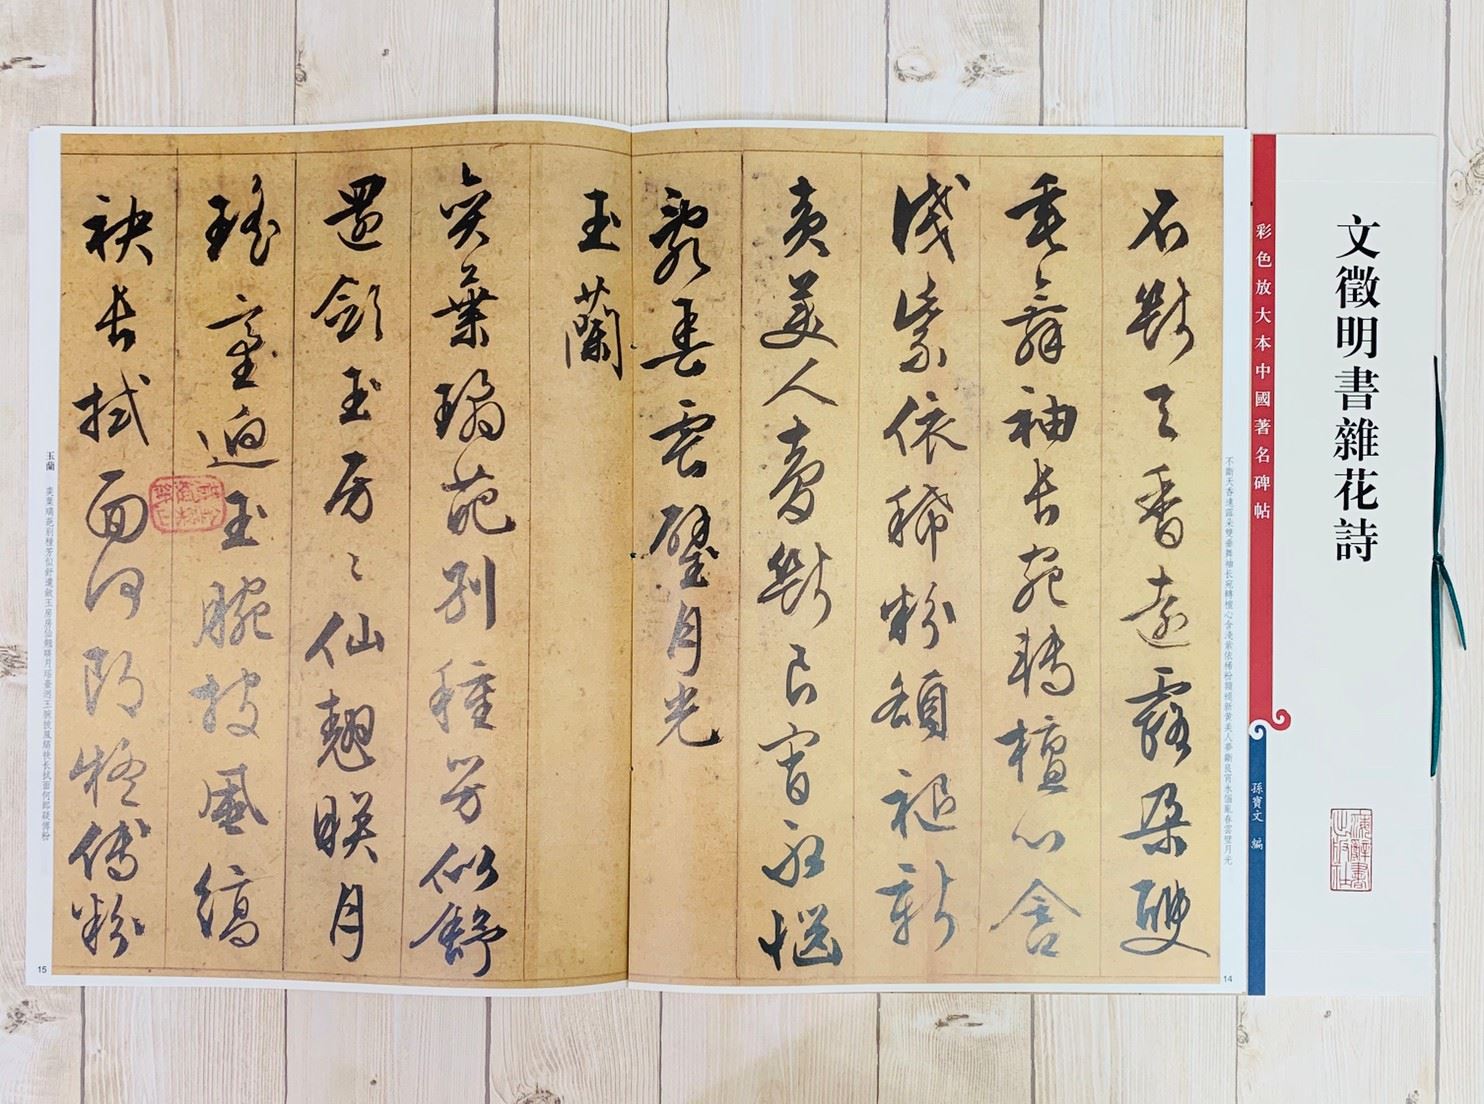 文徵明書雜花詩
彩色放大本中國著名碑帖
孫寶文 編
不斷天香遠露朵雙垂舞袖长宛轉檀心含淺紫依稀粉額褪新黄美人夢斷良宵永惱亂春雲璧月光
14
不斷天香遠露朵雙
垂舞袖長宛轉檀心含
淺紫依稀粉額褪新
黃美人夢斷良宵永惱
亂春雲璧月光
玉蘭
奕葉璚葩別種芳似舒
還斂玉房〻仙翹映月
瑤臺迥玉腕披風縞
袂長拭面何郎疑傅粉
玉蘭 奕葉璚葩別種芳似舒還斂玉房房仙翹映月瑤臺迥玉腕披風縞袂长拭面何郎疑傅粉
15